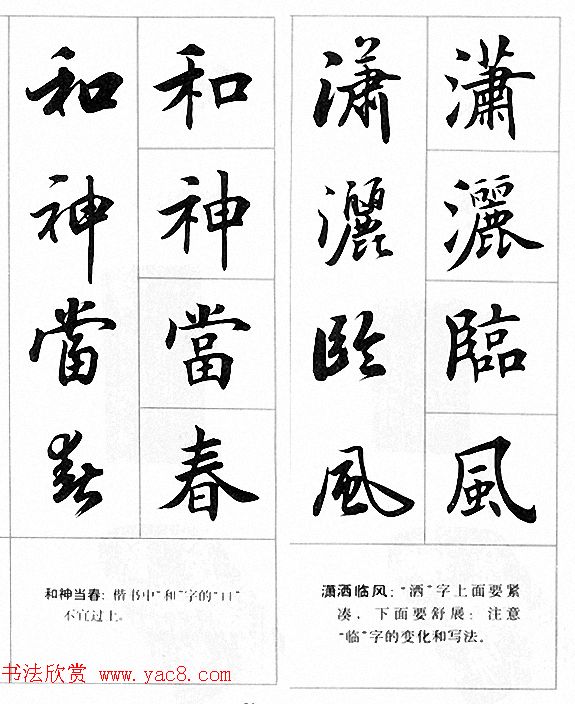 瀟灑臨風
瀟灑臨風
和神當春
和神當春
潇洒临风：“洒”字上面要紧
凑，下面要舒展；注意
“临”字的变化和写法。
和神当春：楷书中“和”字的“口”
不宜过上。
书法欣赏 www.yac8.com